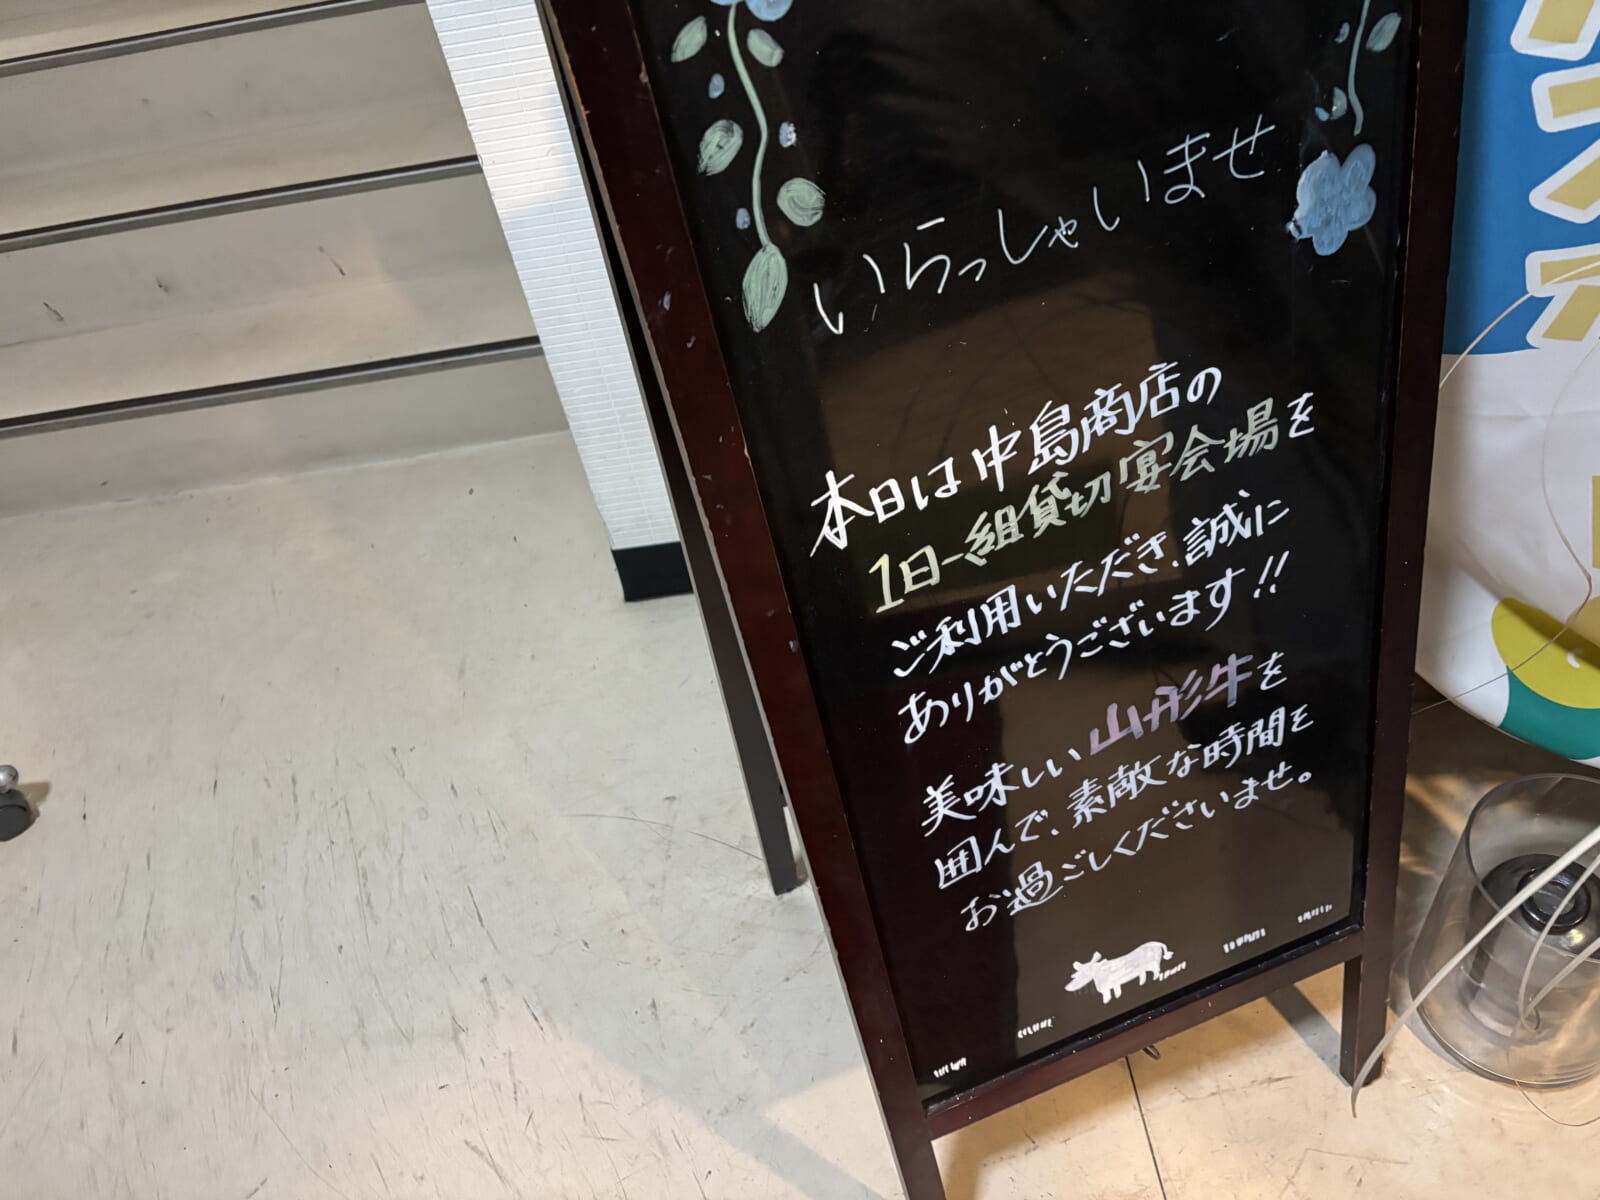 いらっしゃいませ
本日は中島商店の
1日一組貸切宴会場を
ご利用いただき、誠に
ありがとうございます!!
美味しい山形牛を
囲んで、素敵な時間を
お過ごしくださいませ。